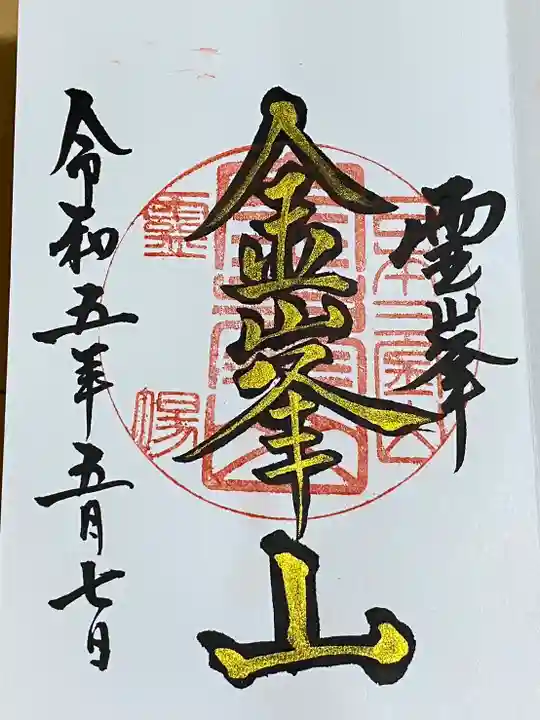 雲峯
金峯山
令和五年五月七日
霊
場